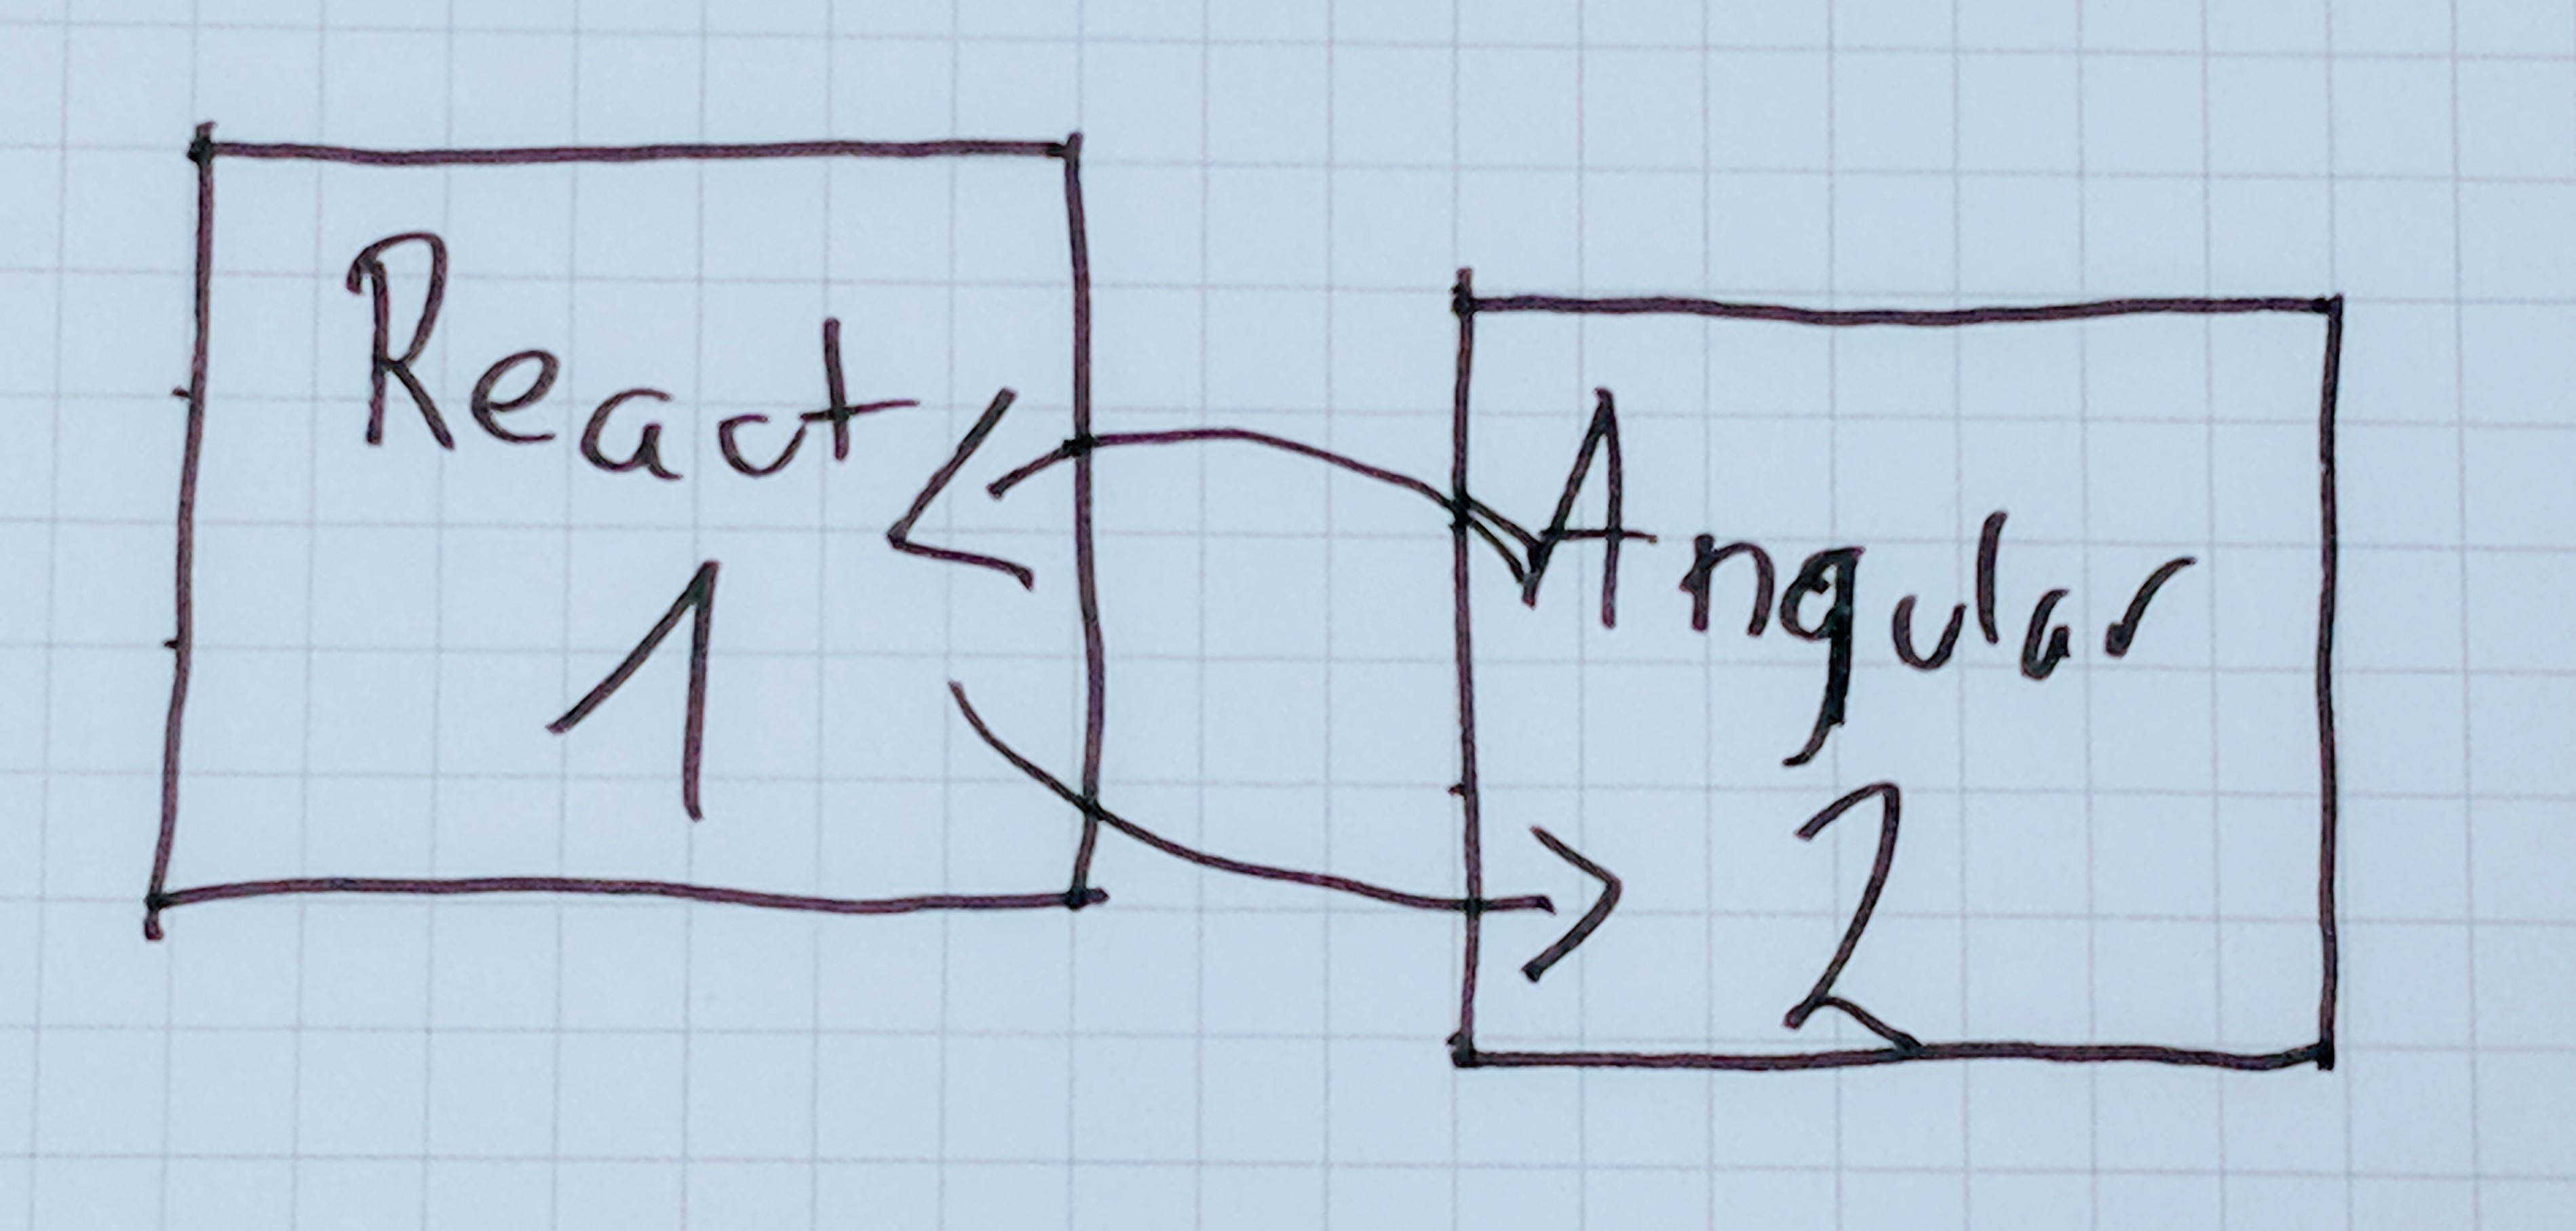 React
1
Angular
2